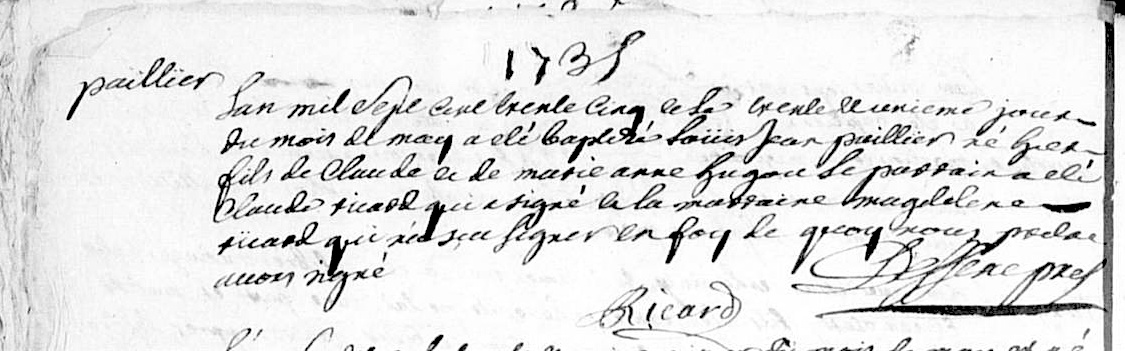 1735
paillier
Lan mil sept cent trente cinq et le trente et unieme jour
du mois de may a eté baptizé Loüis Jean paillier né hier
fils de Claude et de marie anne hugon le parrain a eté
Claude ricard qui a signé et la marraine magdelene
ricard qui n'a sçu signer en foy de quoy nous
avons signé
Ricard